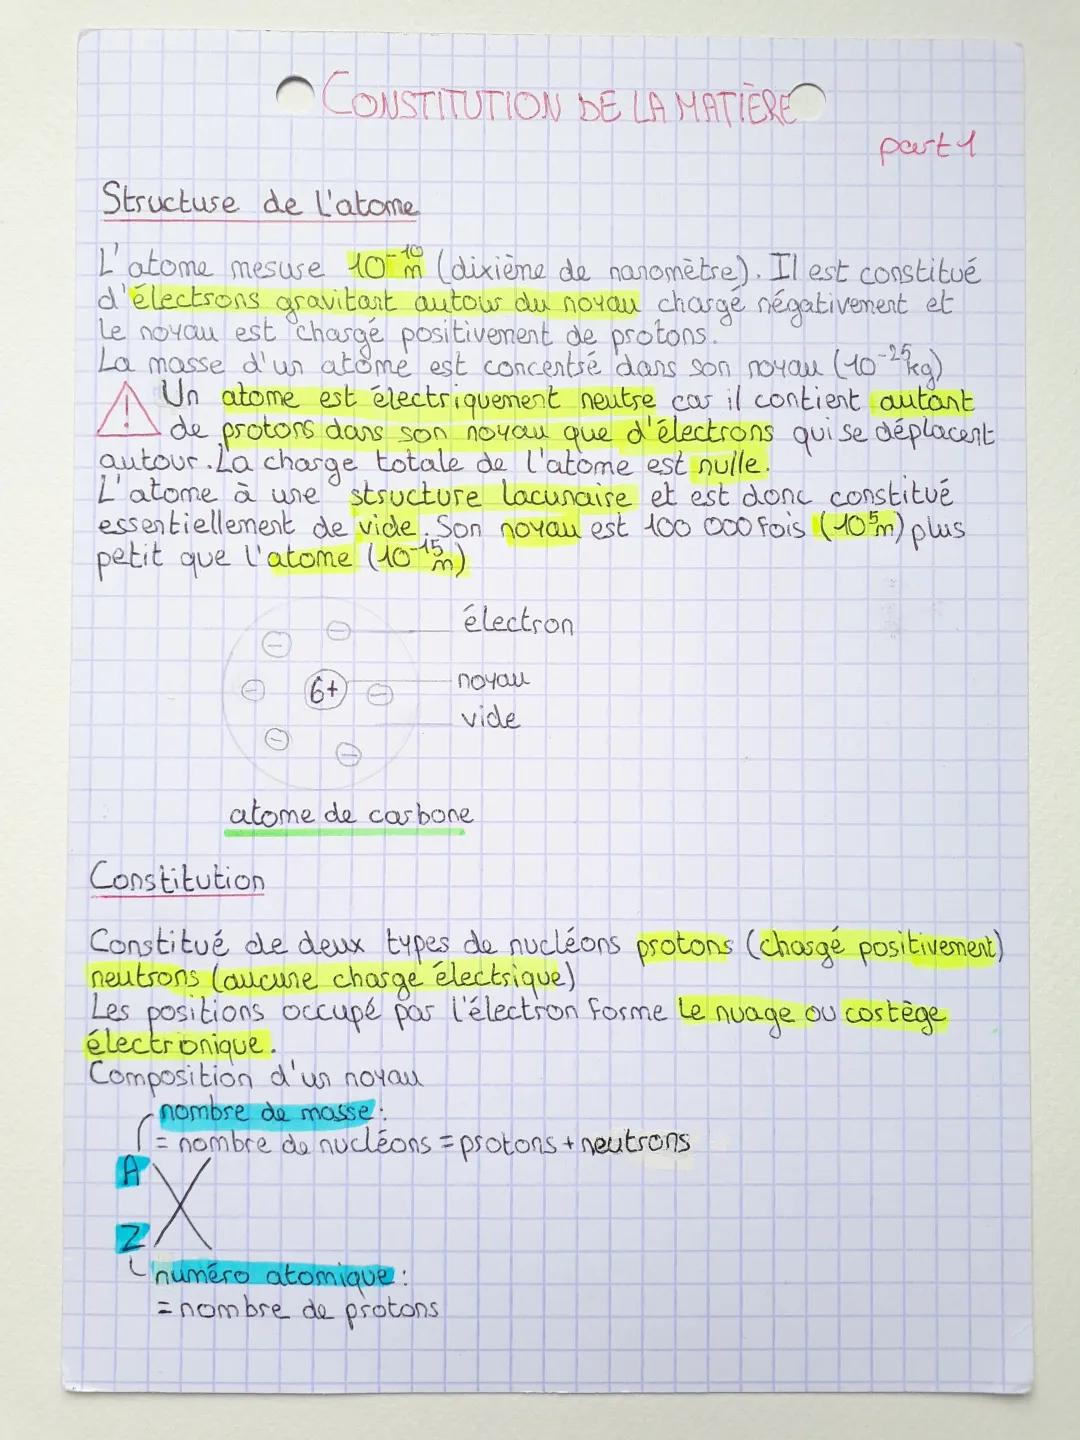 CONSTITUTION DE LA MATIÈRE
part 1
Structure de l'atome
L'atome mesure 10⁻¹⁰m (dixième de nanomètre). Il est constitué
d'électrons gravitant autour du noyau chargé négativement et
le noyau est chargé positivement de protons.
La masse d'un atome est concentré dans son noyau (10⁻²⁵kg)
! Un atome est électriquement neutre car il contient autant
de protons dans son noyau que d'électrons qui se déplacent
autour. La charge totale de l'atome est nulle.
L'atome à une structure lacunaire et est donc constitué
essentiellement de vide. Son noyau est 100 000 fois (10⁵m) plus
petit que l'atome (10⁻¹⁵m)
électron
6+ noyau
vide
atome de carbone
Constitution
Constitué de deux types de nucléons protons (chargé positivement)
neutrons (aucune charge électrique)
Les positions occupé par l'électron forme le nuage ou cortège
électronique.
Composition d'un noyau
nombre de masse :
= nombre de nucléons = protons + neutrons
A
X
Z
numéro atomique :
= nombre de protons